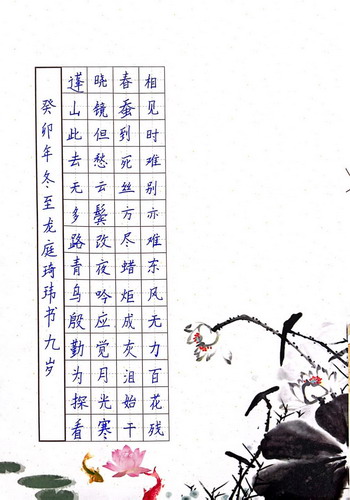 相见时难别亦难东风无力百花残
春蚕到死丝方尽蜡炬成灰泪始干
晓镜但愁云鬓改夜吟应觉月光寒
蓬山此去无多路青鸟殷勤为探看
癸卯年冬至龙庭琦玮书九岁